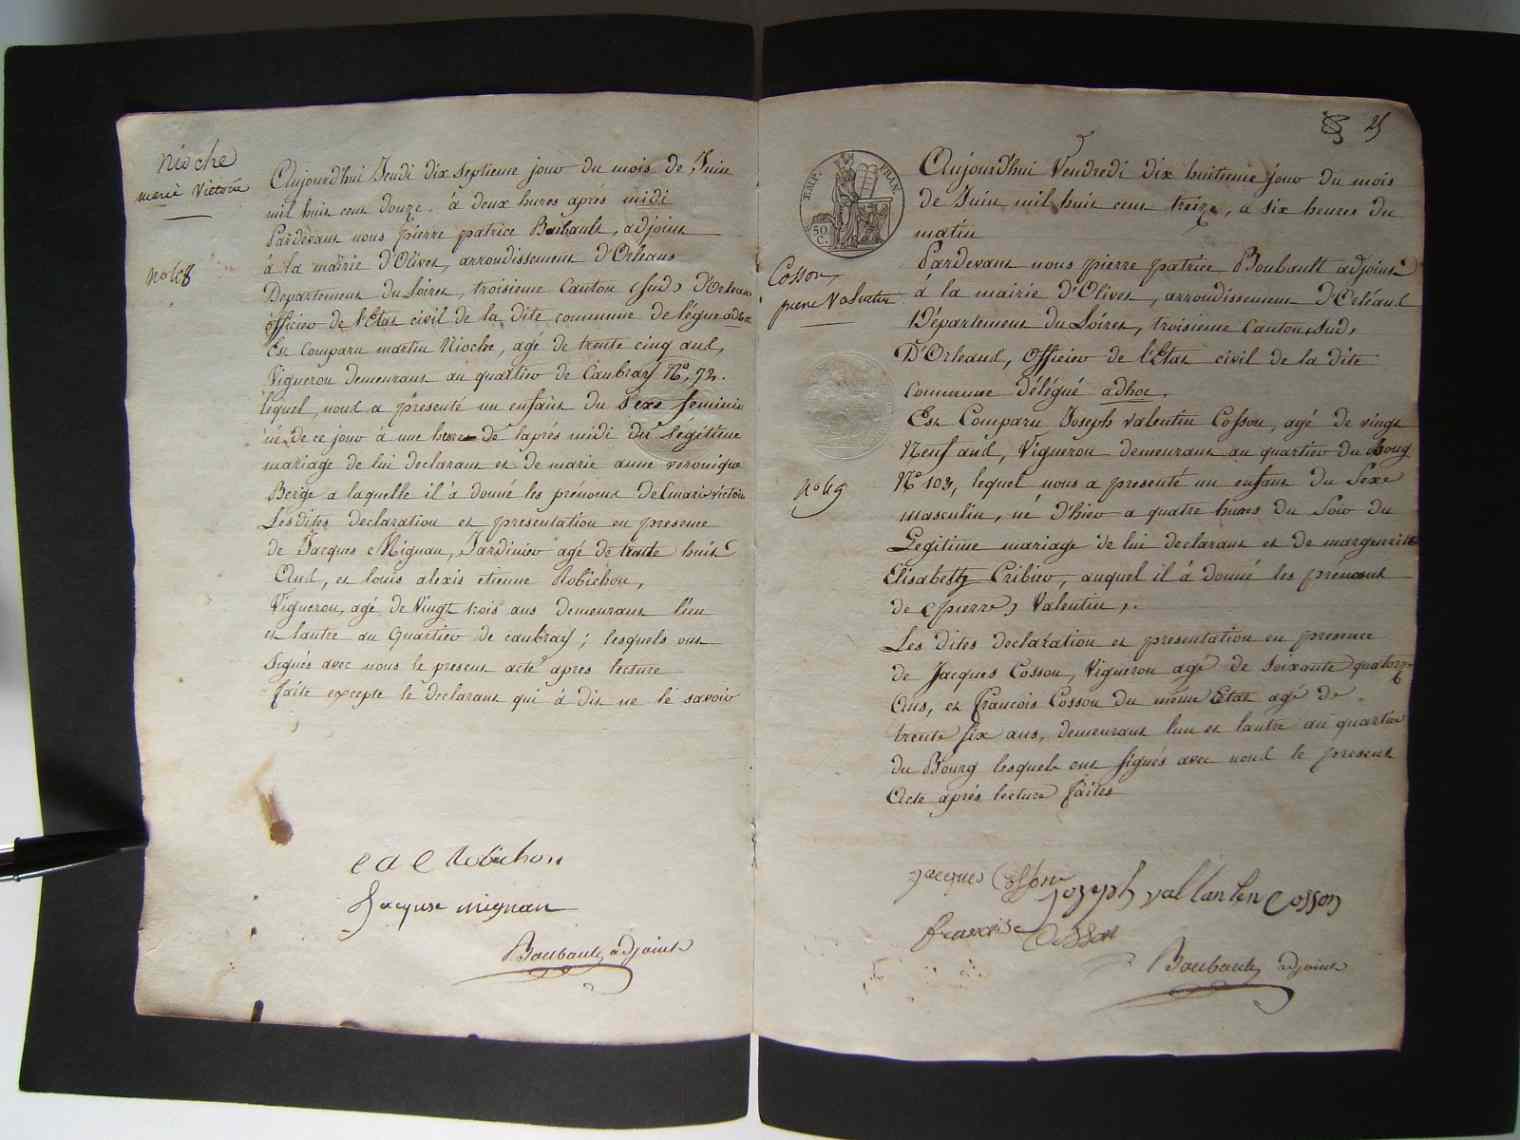 Nioche
marie Victoire
No 68
Aujourd'hui Jeudi dix septieme jour du mois de Juin
mil huit cens douze. à deux hures après midi
Pardevant nous pierre patrice Boubault, adjoint
à la mairie d'Olivet, arrondissement d'Orleans
Departement du Loiret, troisieme Canton (sud) d'Orleans
officier de l'Etat civil de la dite commune delégué adhoc
Est Comparu martin Nioche, agé de trente cinq ans,
Vigneron demeurant au quartier de Caubray No, 72.
lequel, nous a presenté un enfant du Sexe feminin
né, de ce jour à une hure de laprés midi du légitime
mariage de lui declarant et de marie anne veronique
Berge a laquelle il a donné les prénoms de (marie victoire
Lesdites declaration et presentation en presence
de Jacques Mignan, Jardinier agé de trente huit
Ans, et louis alexis etienne Robichon,
Vigneron, agé de Vingt trois ans demeurant l'un
et lautre au Quartier de caubray; lesquels ont
Signés avec nous le present acte apres lecture
faite excepte le declarant qui à dit ne le savoir
Robichon
Jacque mignan
Boubault adjoint
25
EMP. FRAN.
50
C.
Cosson,
pierre Valentin
No 69
Aujourd'hui Vendredi dix huitieme jour du mois
de Juin mil huit cens treize, a six heures du
matin
Pardevant nous pierre patrice Boubault adjoint
à la mairie d'Olivet, arrondissement d'Orléans
Département du Loiret, troisieme Canton, Sud,
D'Orleans, officier de l'Etat civil de la dite
Commune délégué adhoc,
Est Comparu Joseph Valentin Cosson, agé de vingt
Neuf ans, Vigneron demeurant au quartier du bourg
No 103, lequel nous a presenté un enfant du Sexe
masculin, né d'hier a quatre hures du Soir du
Legitime mariage de lui declarant et de marguerite
Elisabeth Cribier, auquel il à donné les prénoms
de (pierre) Valentin,.
Les dites declaration et presentation en presence
de Jacques Cosson, Vigneron agé de Soixante quatorze
Ans, et François Cosson du même Etat agé de
trente six ans, demeurant l'un et lautre au quartier
du Bourg lesquels ont signés avec nous le present
Acte aprés lecture faites
jacques Cosson
jozeph vallanten cosson
francois cosson
Boubault adjoint